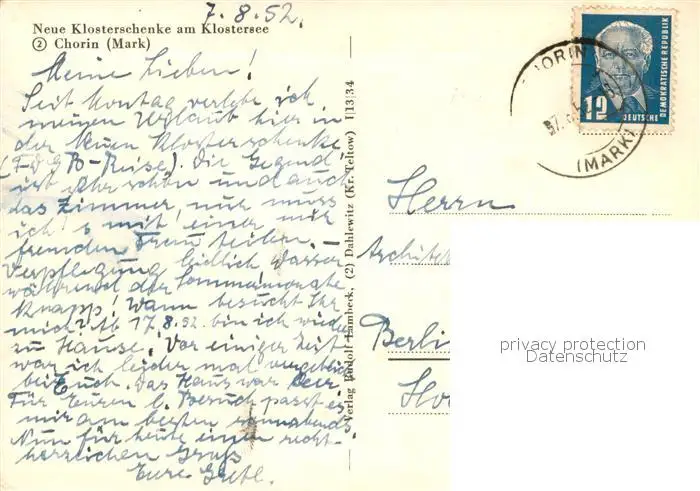 7.8.52.
Neue Klosterschenke am Klostersee
② Chorin (Mark)
Meine Lieben!
Seit Montag verlebe ich
meinen Urlaub hier in
der Neuen Klosterschenke
(FDGB-Reise). Die Gegend
ist sehr schön und auch
das Zimmer, nur muss
ich's mit einer mir
fremden Frau teilen.
Verpflegung leidlich, Wasser
während der Sommermonate
knapp! Wann besucht Ihr
mich? Ab 17.8.52. bin ich wieder
zu Hause. Vor einiger Zeit
war ich leider mal vergeblich
bei Euch. Das Haus war leer.
Für Euren l. Besuch passt es
mir am besten sonnabends.
Nun für heute einen recht
herzlichen Gruß
Eure Gretl.
Verlag Rudolf Lambeck, (2) Dahlewitz (Kr. Teltow) I|13|34
DEUTSCHE DEMOKRATISCHE REPUBLIK
12
CHORIN
(MARK)
Herrn
Architek
Berli
privacy protection
Datenschutz